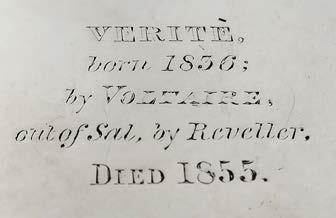 VERITÈ,
born 1836;
by VOLTAIRE,
out of Sal, by Reveller.
DIED 1855.